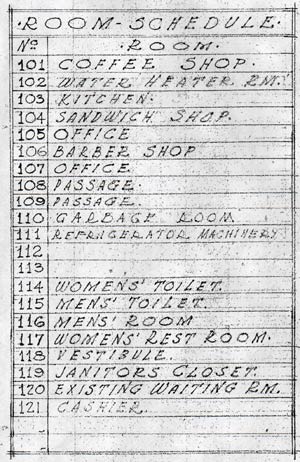 ·ROOM-SCHEDULE·
No ·ROOM·
101 COFFEE SHOP.
102 WATER HEATER RM.
103 KITCHEN.
104 SANDWICH SHOP.
105 OFFICE
106 BARBER SHOP
107 OFFICE.
108 PASSAGE.
109 PASSAGE.
110 GARBAGE ROOM
111 REFRIGERATOR MACHINERY
112
113
114 WOMENS' TOILET.
115 MENS' TOILET.
116 MENS' ROOM
117 WOMENS' REST ROOM.
118 VESTIBULE.
119 JANITORS CLOSET.
120 EXISTING WAITING RM.
121 CASHIER.